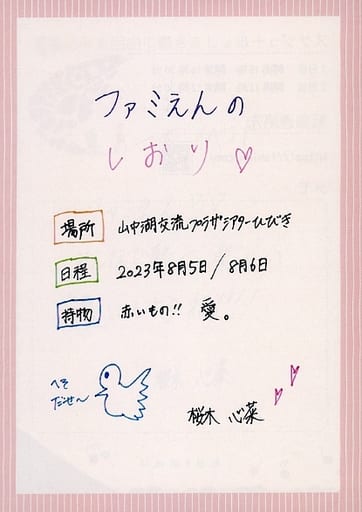 ファミえんの
しおり♡
場所 山中湖交流プラザシアターひびき
日程 2023年8月5日/8月6日
持物 赤いもの!! 愛。
へそ
だせ〜
桜木 心菜